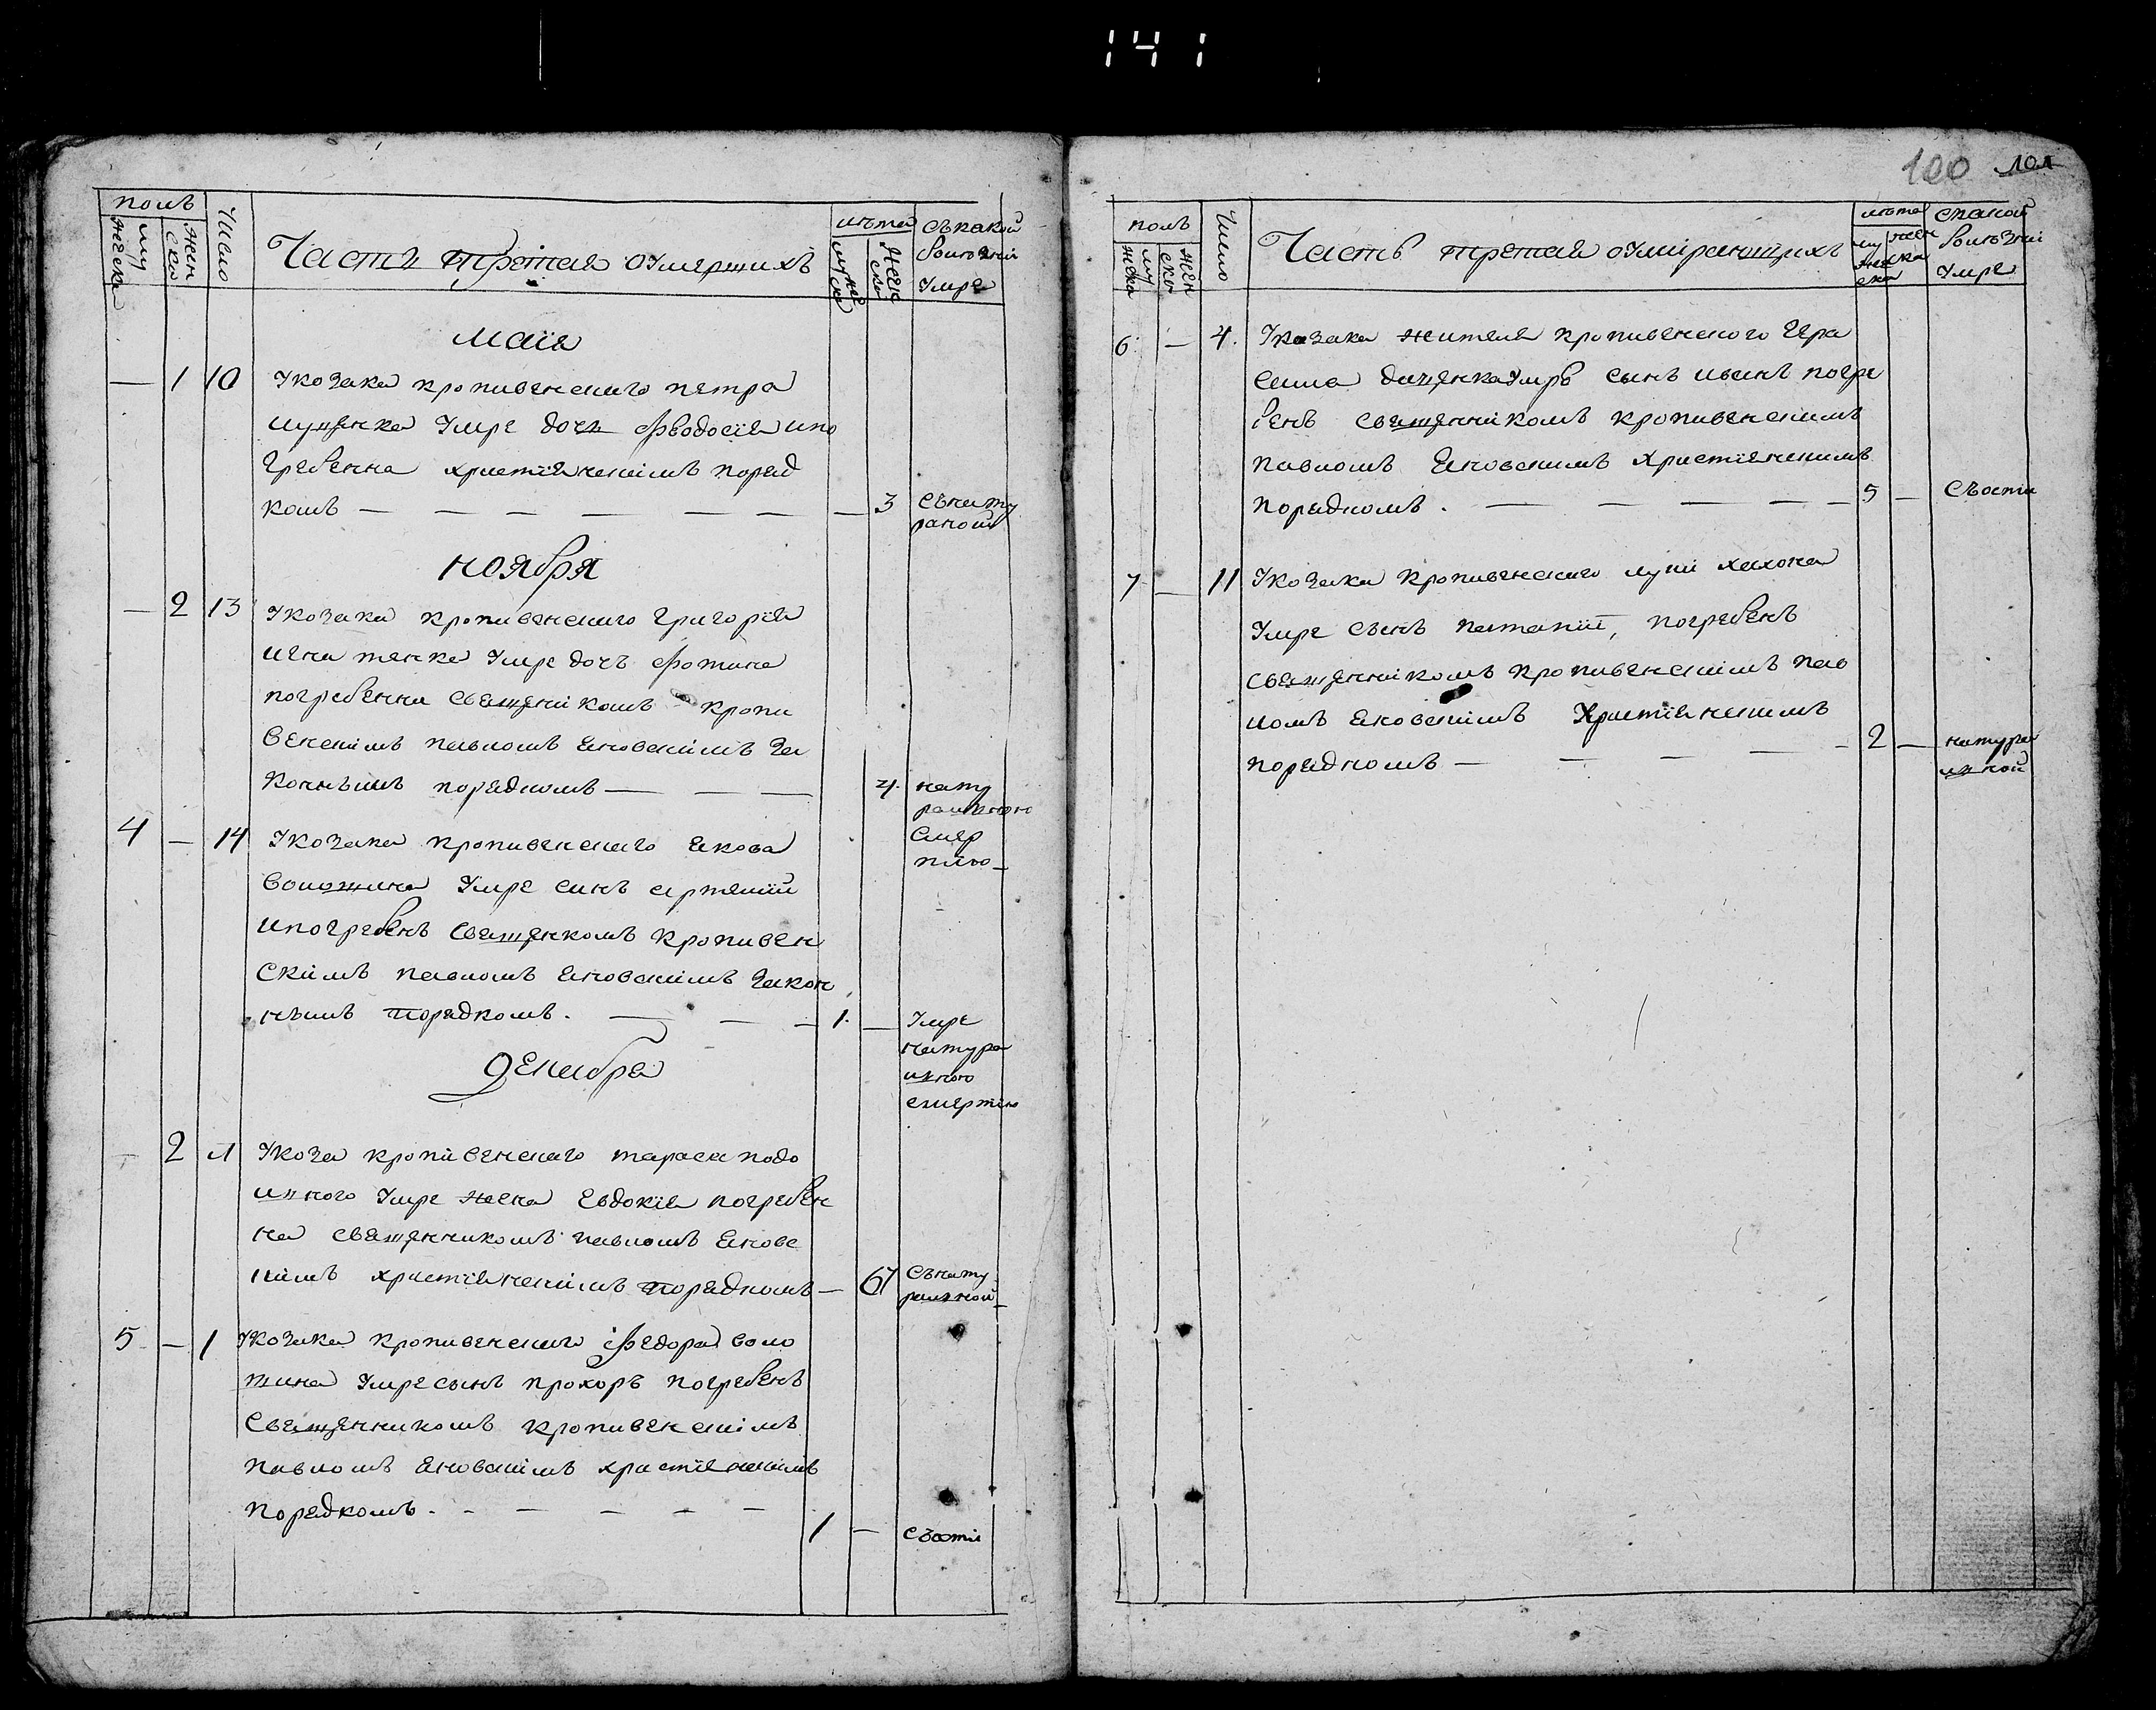 141
полъ
мужеска
женска
Число
Часть третая оумершихъ
лѣта
мужеска
женска
съ какой
болѣзни
умре
маія
— 1 10 У козака кропивенскаго петра
умре дочь феодосія ипо
гребенна христіянскимъ поряд
комъ — — — — — — — 3 съ нату
ралной
ноября
— 2 13 У козака кропивенскаго григорія
умре дочъ фотина
погребенна священикомъ кропи
венскимъ павломъ яновскимъ за
коннымъ порядкомъ — — — 4. нату
ралною
смер
тию
4 — 14 У козака кропивенскаго якова
волошина умре синъ артемий
и погребенъ священкомъ кропивен
скимъ павломъ яновскимъ закон
нымъ порядкомъ. — — — 1. — Умре
натура
лною
смертию
Декабра
— 2 1 У коза кропивенскаго тараса подо
лного умре жена Евдокія погребен
на священникомъ павломъ янове
кимъ христіянскимъ порядкомъ — 67 съ нату
ралной
5 — 1 У козака кропивенскаго федора воло
шина умре сынъ прохоръ погребенъ
священникомъ кропивенскимъ
павломъ яновскимъ христіянскимъ
порядкомъ. — — — — 1 — съ оспи
100 101
полъ
мужеска
женска
Число
Часть третая оумирающихъ
лѣта
мужеска
женска
с какой
болѣзни
умре
6. — 4. У козака жителя кропивенского Гера
сима умръ сынъ иванъ погре
бенъ священникомъ кропивенскимъ
павломъ яновскимъ христіянскимъ
порядкомъ. — — — — 5 — съ оспи
7 — 11 У козака кропивенскаго луки
умре сынъ патапій, погребенъ
священникомъ кропивенскимъ пав
ломъ яновскимъ христіянскимъ
порядкомъ — — — — 2 — натура
лной